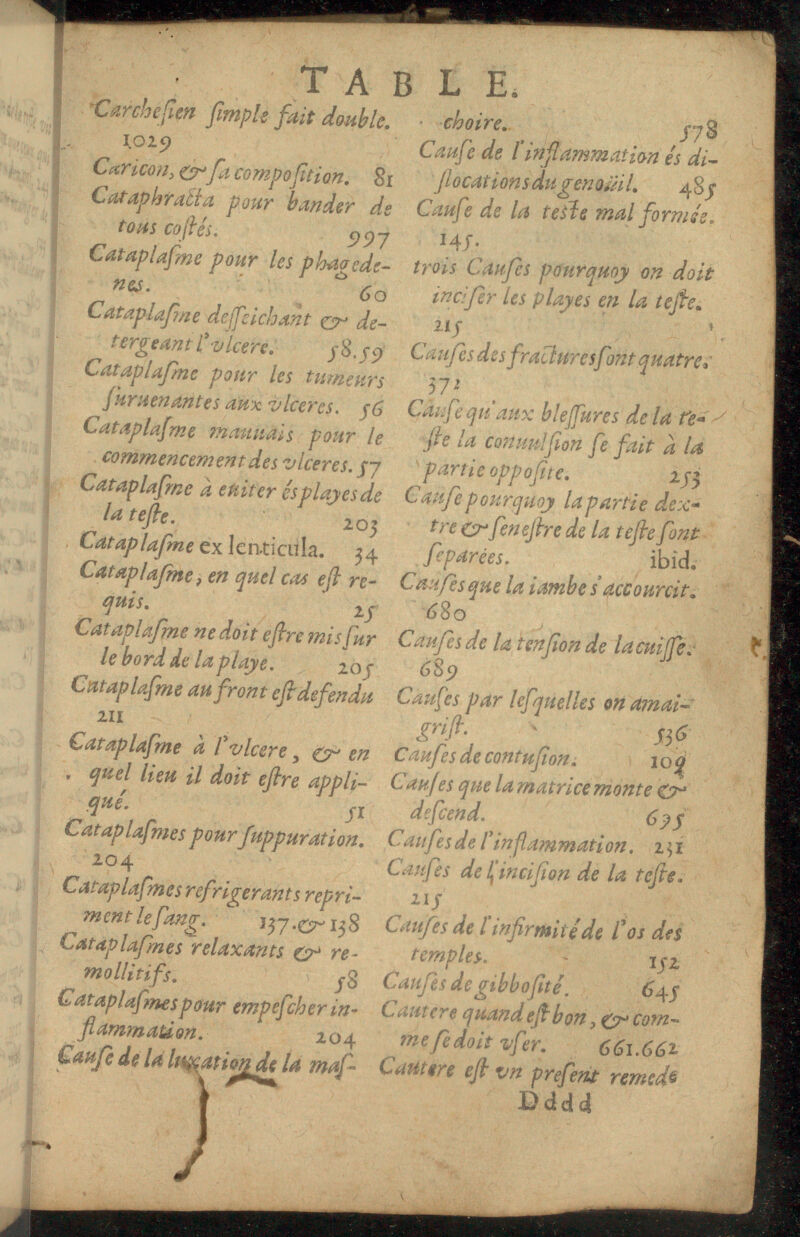 TABLE.
Carchesien simple fait double.
1029
Caricon, & sa composition. 81
Cataphracta pour bander de
tous costés. 997
Cataplasme pour les phagede-
nes. 60
Cataplasme desseichant & de-
tergeant l'vlcere. 58.59
Cataplasme pour les tumeurs
suruenantes aux vlceres. 56
Cataplasme mauuais pour le
commencement des vlceres. 57
Cataplasme à euiter és playes de
la teste. 203
Cataplasme ex lenticula. 34
Cataplasme, en quel cas est re-
quis. 25
Cataplasme ne doit estre mis sur
le bord de la playe. 205
Cataplasme au front est defendu
211
Cataplasme à l'vlcere, & en
quel lieu il doit estre appli-
qué. 51
Cataplasmes pour suppuration.
204
Cataplasmes refrigerants repri-
ment le sang. 137.& 138
Cataplasmes relaxants & re-
mollitifs. 58
Cataplasmes pour empescher in-
flammation. 204
Cause de la luxation de la mas-
choire. 578
Cause de l'inflammation és di-
slocations du genoüil. 485
Cause de la teste mal formée.
145.
trois Causes pourquoy on doit
inciser les playes en la teste.
215
Causes des fractures sont quatre.
372
Cause qu'aux blessures de la te-
ste la conuulsion se fait à la
partie opposite. 253
Cause pourquoy la partie dex-
tre & senestre de la teste sont
separées. ibid.
Causes que la iambe s'accourcit.
680
Causes de la tension de la cuisse.
689
Causes par lesquelles on amai-
grist. 536
Causes de contusion. 109
Causes que la matrice monte &
descend. 695
Causes de l'inflammation. 231
Causes de l'incision de la teste.
215
Causes de l'infirmité de l'os des
temples. 152
Causes de gibbosité. 645
Cautere quand est bon, & com-
me se doit vser. 661.662
Cautere est vn present remede
Dddd